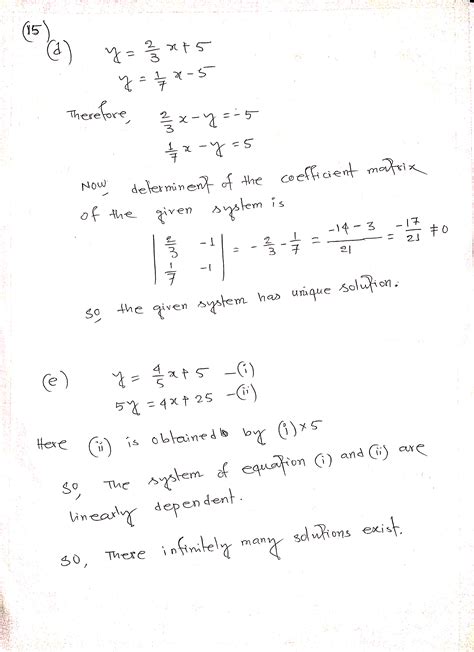 (15)
(d) y = 2/3 x + 5
y = 1/7 x - 5
Therefore, 2/3 x - y = -5
1/7 x - y = 5
Now, determinent of the coefficient matrix
of the given system is
| 2/3 -1 | 1/7 -1 | = - 2/3 - 1/7 = (-14 - 3)/21 = -17/21 ≠ 0
So the given system has unique solution.
(e) y = 4/5 x + 5 -(i)
5y = 4x + 25 -(ii)
Here (ii) is obtained by (i) × 5
So, The system of equation (i) and (ii) are
linearly dependent.
So, There infinitely many solutions exist.